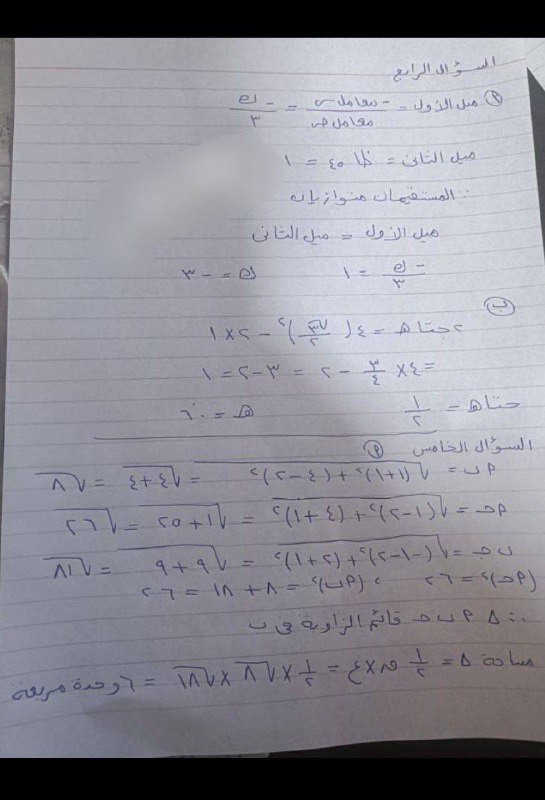 السؤال الرابع
(أ) ميل الأول = - معامل س / معامل ص = - ك / ٣
ميل الثاني = ظا ٤٥ = ١
∵ المستقيمان متوازيان
ميل الأول = ميل الثاني
- ك / ٣ = ١ ك = - ٣
(ب)
٢ حتا هـ = ٤ ( √٣ / ٢ )² - ٢ × ١
= ٤ × ٣ / ٤ - ٢ = ٣ - ٢ = ١
حتا هـ = ١ / ٢ هـ = ٦٠
السؤال الخامس (أ)
أ ب = √(١+١)² + (٤-٢)² = √٤+٤ = √٨
أ حـ = √(١-٢)² + (٤+١)² = √١+٢٥ = √٢٦
ب حـ = √(-١-٢)² + (٢+١)² = √٩+٩ = √١٨
(أ حـ)² = ٢٦ ، (أ ب)² = ٨ + ١٨ = ٢٦
∴ ∆ أ ب حـ قائم الزاوية في ب
مساحة ∆ = ١ / ٢ ق × ع = ١ / ٢ × √٨ × √١٨ = ٦ وحدة مربعة